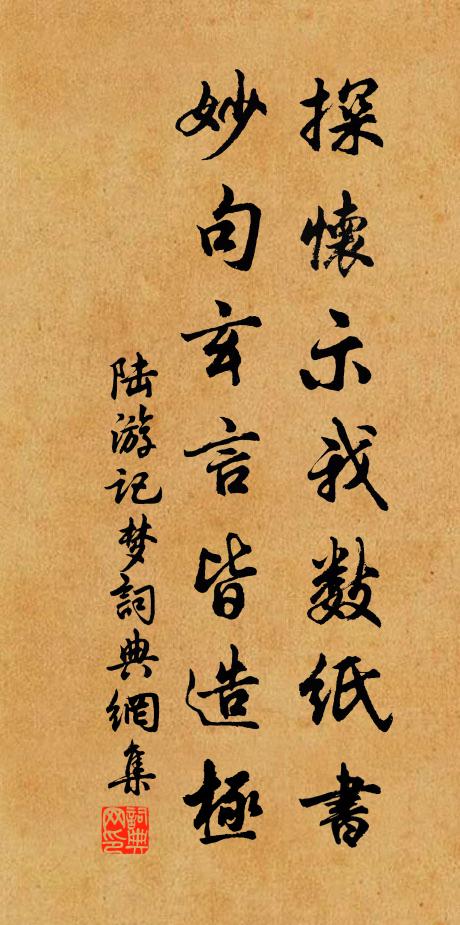 探懷示我数紙書
妙句玄言皆造極
陆游记梦詞典網集
詞典网印